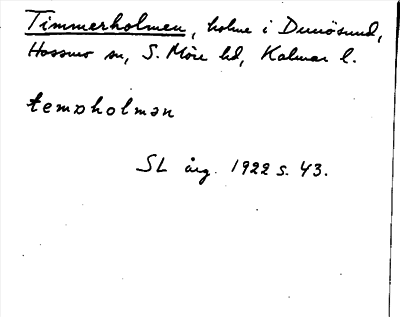 Timmerholmen, holme i Dunösund,
Hossmo sn, S. Möre hd, Kalmar l.
teməholmən
SL årg. 1922 s. 43.